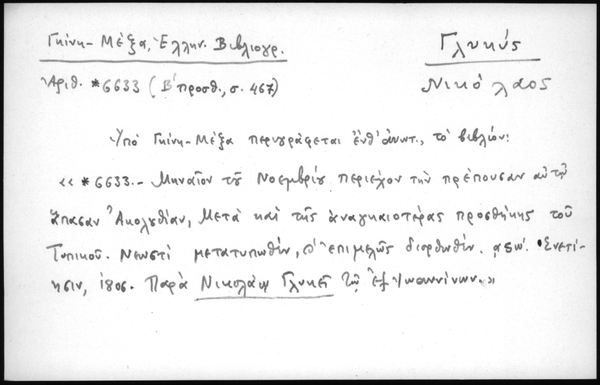 Γκίνη-Μέξα, Ἑλλην. Βιβλιογρ.
Γλυκύς
Ἀριθ. *6633 (Β' προσθ., σ. 467)
Νικόλαος
Ὑπό Γκίνη-Μέξα περιγράφεται ἐνθ' ἀνωτ., τό βιβλίον:
«*6633.- Μηναῖον τοῦ Νοεμβρίου περιέχον τὴν πρέπουσαν αὐτῷ
ἅπασαν Ἀκολουθίαν, Μετά καὶ τῆς ἀναγκαιοτέρας προσθήκης τοῦ
Τυπικοῦ. Νεωστὶ μετατυπωθὲν, καὶ ἐπιμελῶς διορθωθέν. ͵αωϛ'. Ἐνετί-
ησιν, 1806. Παρά Νικολάῳ Γλυκεῖ τῷ ἐξ Ἰωαννίνων.»